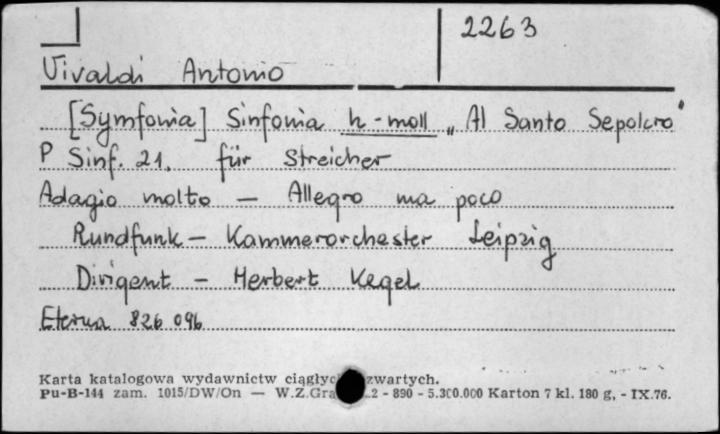 2263
Vivaldi Antonio
[Symfonia] Sinfonia h-moll „Al Santo Sepolcro"
P Sinf. 21. für Streicher
Adagio molto – Allegro ma poco
Rundfunk – Kammerorchester Leipzig
Dirigent – Herbert Kegel
Eterna 826 096
Karta katalogowa wydawnictw zwartych.
Pu-B-144 zam. 1015/DW/On — W.Z.Gra 2 - 890 - 5.300.000 Karton 7 kl. 180 g, - IX.76.